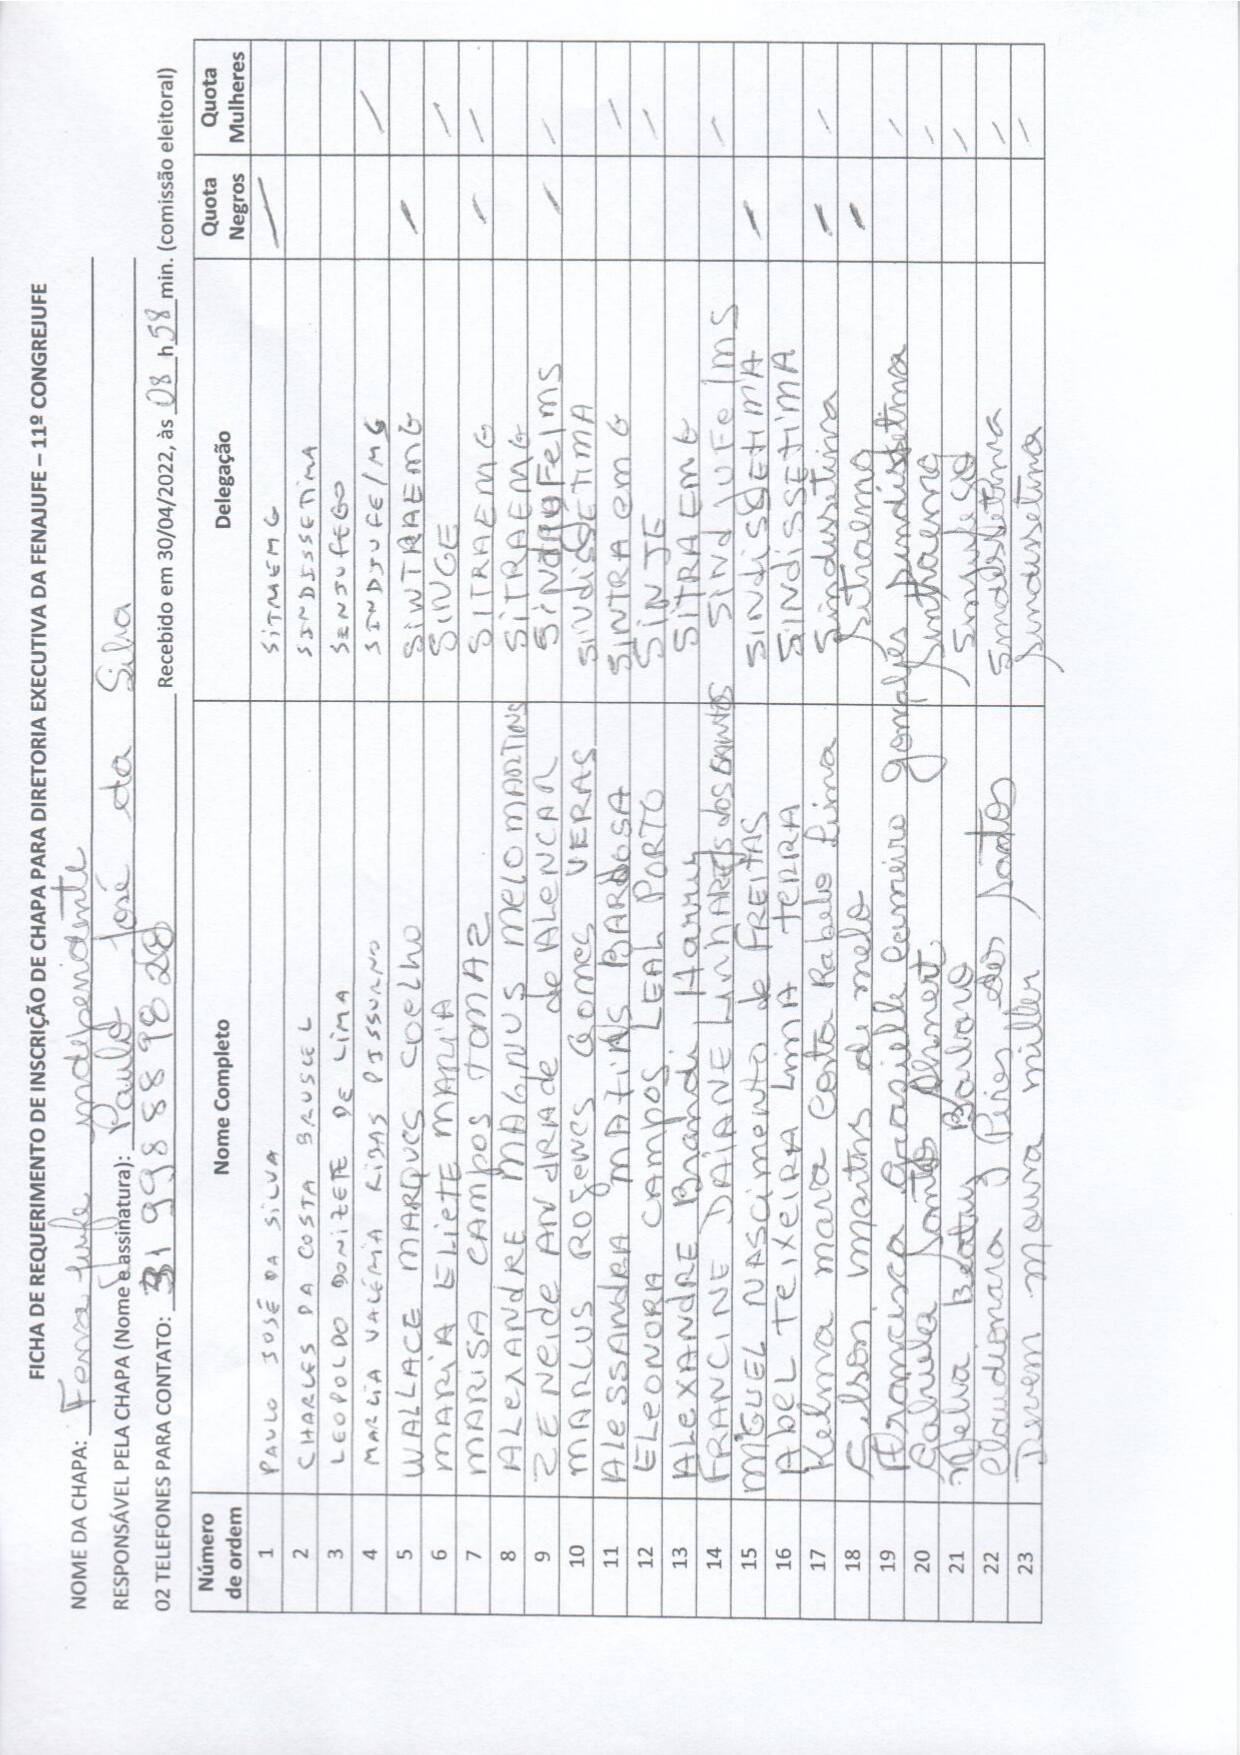 FICHA DE REQUERIMENTO DE INSCRIÇÃO DE CHAPA PARA DIRETORIA EXECUTIVA DA FENAJUFE – 11º CONGREJUFE
NOME DA CHAPA: Fenajufe independente
RESPONSÁVEL PELA CHAPA (Nome e assinatura): Paulo José da Silva
02 TELEFONES PARA CONTATO: 31 99888 98 28 Recebido em 30/04/2022, às 08 h 58 min. (comissão eleitoral)
Número de ordem Nome Completo Delegação Quota Negros Quota Mulheres
1 PAULO JOSÉ DA SILVA SITRAEMG /
2 CHARLES DA COSTA BRUSCEL SINDISSETIMA
3 LEOPOLDO DONIZETE DE LIMA SINJUFEGO
4 MARCIA VALÉRIA RIBAS PISSURNO SINDJUFE/MG /
5 WALLACE MARQUES COELHO SINTRAEMG /
6 MARIA ELIETE MARIA SINGE /
7 MARISA CAMPOS TOMAZ SITRAEMG / /
8 ALEXANDRE MAGNUS MELO MARTINS SITRAEMG
9 ZENEIDE ANDRADE de ALENCAR SINDJUFE/MS / /
10 MARLUS ROGENES GOMES VERAS SINDISSETIMA
11 ALESSANDRA MATIAS BARBOSA SINTRAEMG /
12 ELEONORA CAMPOS LEAL PORTO SINJE /
13 ALEXANDRE Brandi Harry SITRAEMG
14 FRANCINE DAIANE LINHARES dos SANTOS SINDJUFE/MS /
15 MIGUEL NASCIMENTO de FREITAS SINDISSETIMA /
16 ABEL TEIXEIRA LIMA TERRA SINDISSETIMA
17 Kelma mara Costa Rabelo Lima Sindissetima / /
18 Gelson martins de melo Sitraemg /
19 Francisca Grasielle Carneiro Gonçalves Sindissetima /
20 Gabriela Santos Sintraemg /
21 Melva Beatriz Barbara /
22 Claudiomara Pires dos Santos Sindissetima /
23 moura miller Sindissetima /